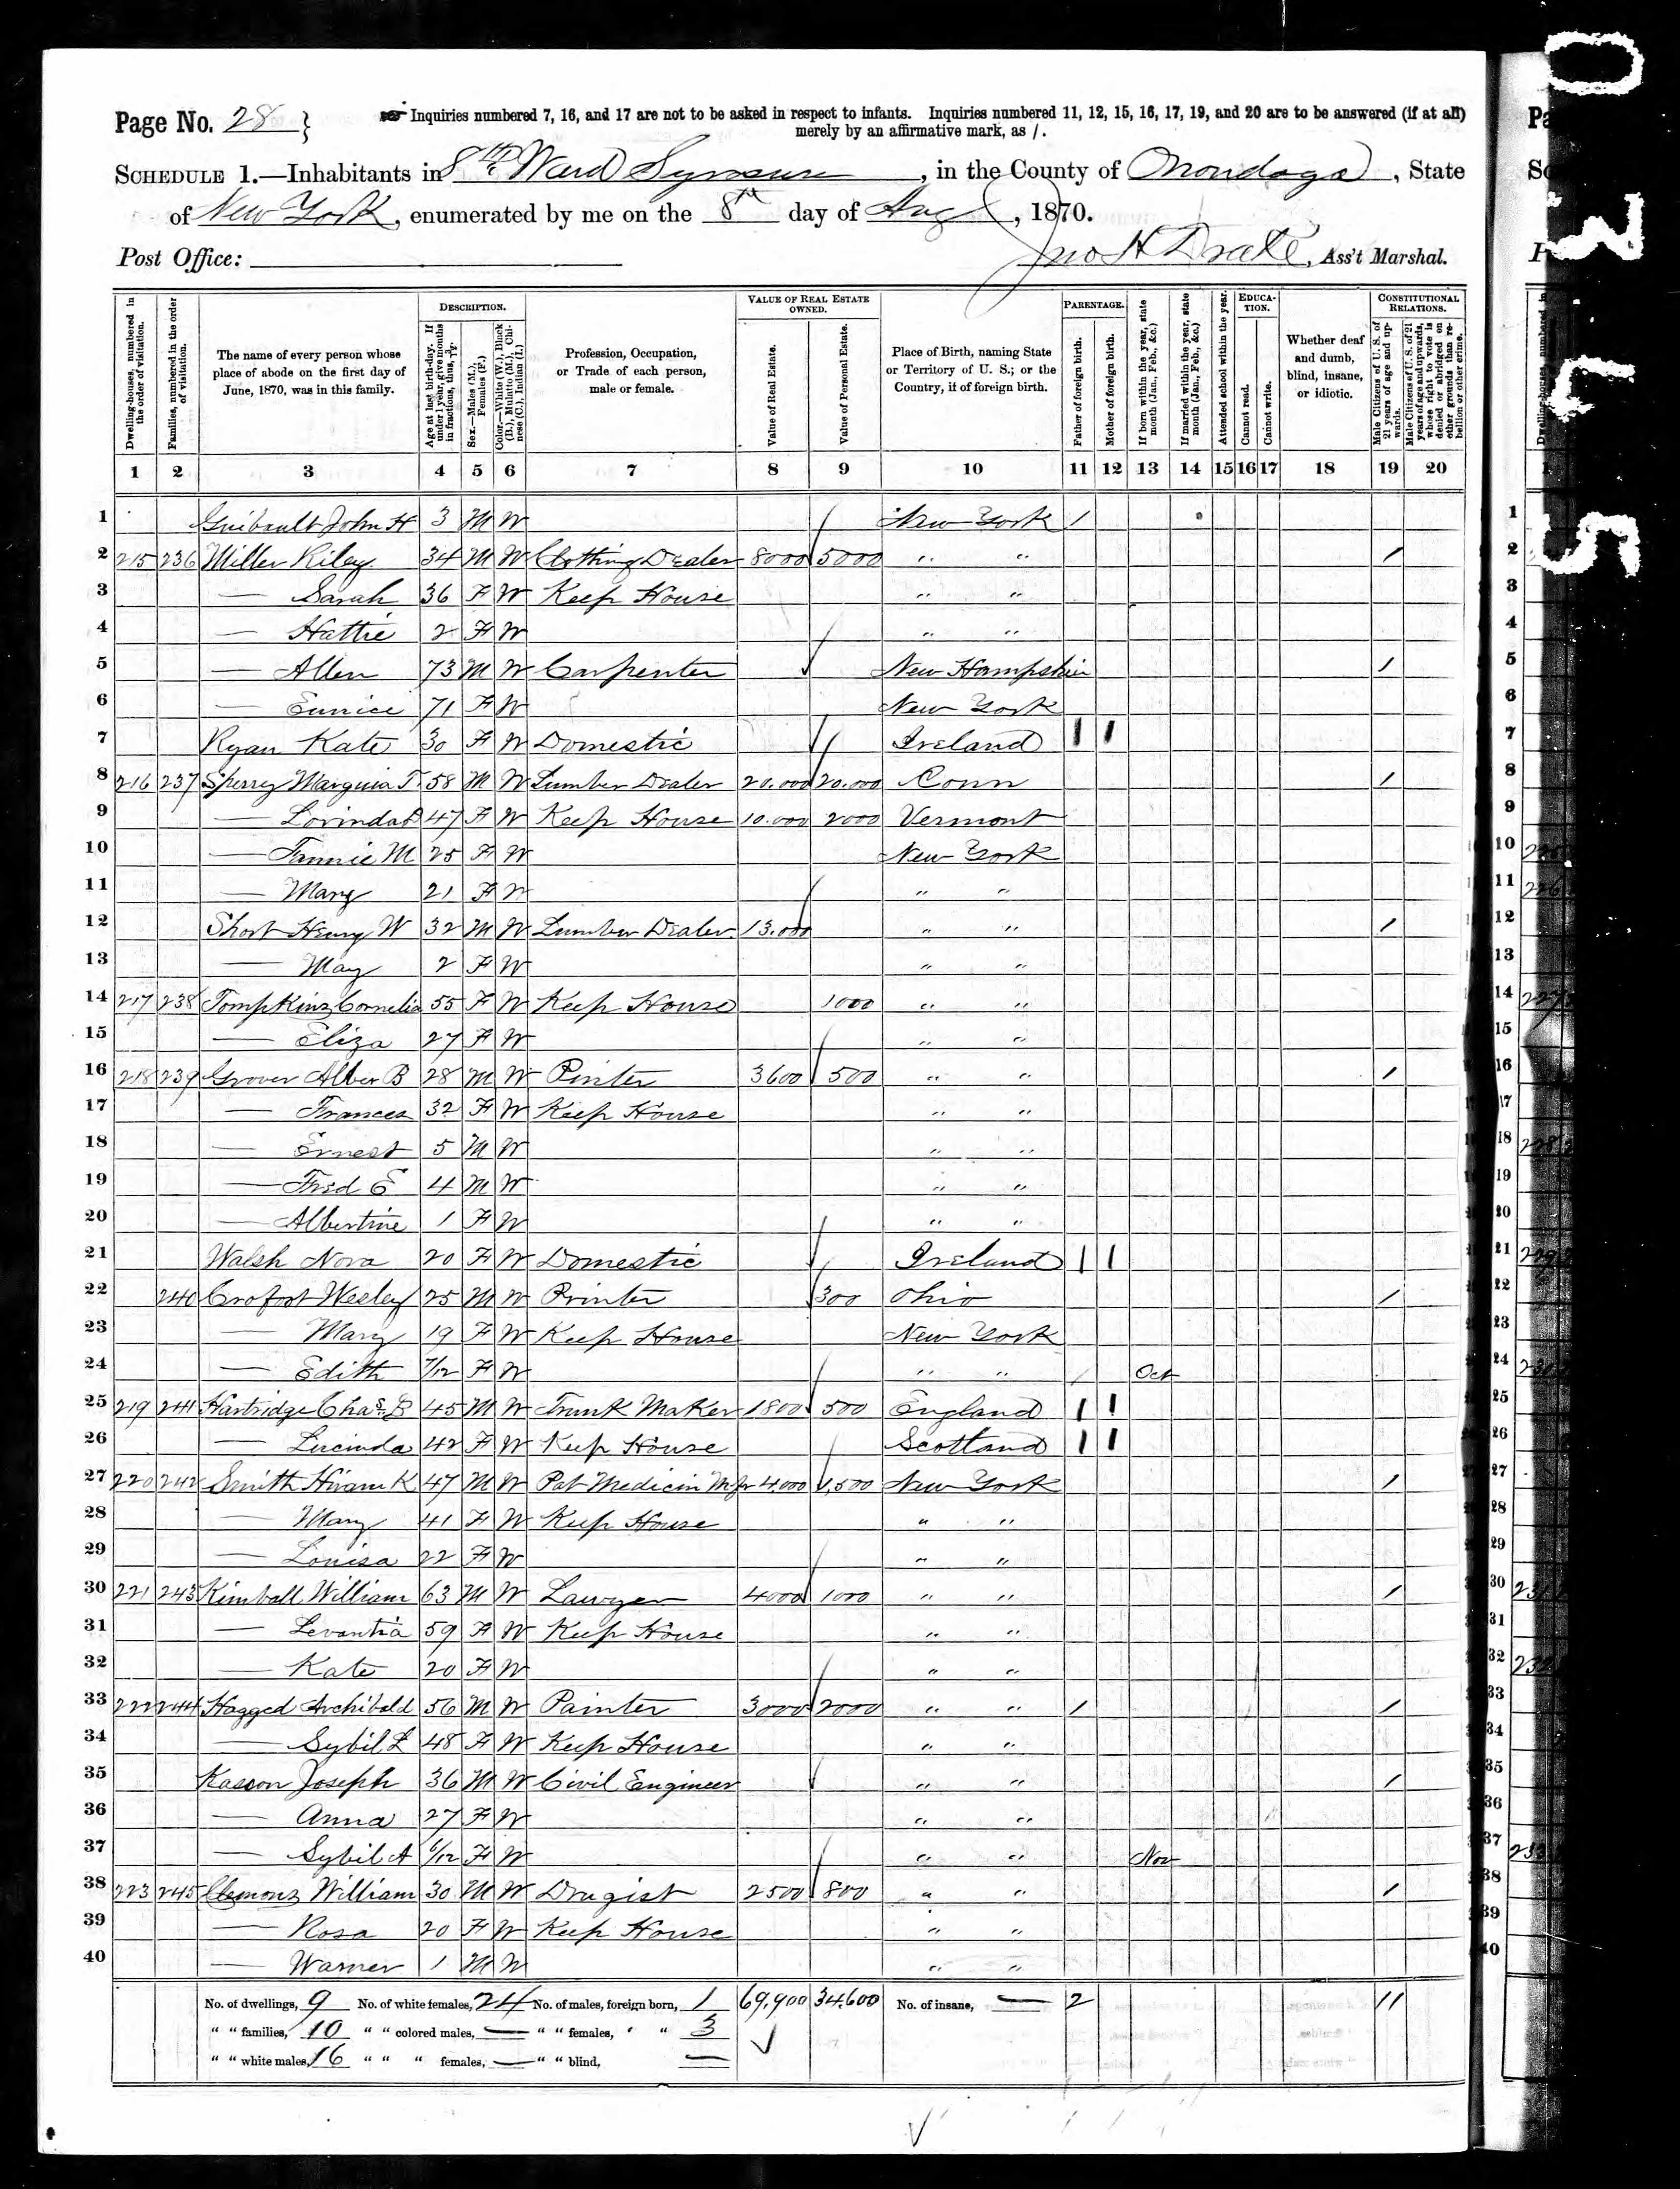 Page No. 28 } Inquiries numbered 7, 16, and 17 are not to be asked in respect to infants. Inquiries numbered 11, 12, 15, 16, 17, 19, and 20 are to be answered (if at all)
merely by an affirmative mark, as /.
SCHEDULE 1.—Inhabitants in 8th Ward Syracuse, in the County of Onondaga, State
of New York, enumerated by me on the 8th day of Aug, 1870.
Post Office: Jno H Drake, Ass't Marshal.
Dwelling-houses, numbered in the order of visitation.
Families, numbered in the order of visitation.
The name of every person whose place of abode on the first day of June, 1870, was in this family.
DESCRIPTION.
Age at last birth-day. If under 1 year, give months in fractions, thus, 3/12.
Sex.—Males (M.), Females (F.)
Color.—White (W.), Black (B.), Mulatto (M.), Chinese (C.), Indian (I.)
Profession, Occupation, or Trade of each person, male or female.
VALUE OF REAL ESTATE OWNED.
Value of Real Estate.
Value of Personal Estate.
Place of Birth, naming State or Territory of U. S.; or the Country, if of foreign birth.
PARENTAGE.
Father of foreign birth.
Mother of foreign birth.
If born within the year, state month (Jan., Feb., &c.)
If married within the year, state month (Jan., Feb., &c.)
Attended school within the year.
EDUCATION.
Cannot read.
Cannot write.
Whether deaf and dumb, blind, insane, or idiotic.
CONSTITUTIONAL RELATIONS.
Male Citizens of U. S. of 21 years of age and upwards.
Male Citizens of U. S. of 21 years of age and upwards, whose right to vote is denied or abridged on other grounds than rebellion or other crime.
1 2 3 4 5 6 7 8 9 10 11 12 13 14 15 16 17 18 19 20
1 Guibault John H 3 M W New York /
2 215 236 Miller Riley 34 M W Clothing Dealer 8000 5000 " " /
3 — Sarah 36 F W Keep House " "
4 — Hattie 2 F W " "
5 — Allen 73 M W Carpenter New Hampshir /
6 — Eunice 71 F W New York
7 Ryan Kate 30 F W Domestic Ireland 1 1
8 216 237 Sperry Marquia T. 58 M W Lumber Dealer 20.000 20.000 Conn /
9 — Lorinda P 47 F W Keep House 10.000 2000 Vermont
10 — Fannie M 25 F W New York
11 — Mary 21 F W " "
12 Short Henry W 32 M W Lumber Dealer 13.000 " " /
13 — May 2 F W " "
14 217 238 Tompkins Cornelia 55 F W Keep House 1000 " "
15 — Eliza 27 F W " "
16 218 239 Grover Alber B 28 M W Pinter 3600 500 " " /
17 — Frances 32 F W Keep House " "
18 — Ernest 5 M W " "
19 — Fred E 4 M W " "
20 — Albertine 1 F W " "
21 Walsh Nora 20 F W Domestic Ireland 1 1
22 240 Crofort Wesley 25 M W Printer 300 Ohio /
23 — Mary 19 F W Keep House New York
24 — Edith 7/12 F W " " / Oct
25 219 241 Hartridge Chas. 45 M W Trunk Maker 1800 500 England 1 1
26 — Lucinda 42 F W Keep House Scotland 1 1
27 220 242 Smith Hiram K 47 M W Pat Medicin Mfr 4.000 1,500 New York /
28 — Mary 41 F W Keep House " "
29 — Louisa 22 F W " "
30 221 243 Kimball William 63 M W Lawyer 4000 1000 " " /
31 — Levantia 59 F W Keep House " "
32 — Kate 20 F W " "
33 222 244 Hagged Archibald 56 M W Painter 3000 2000 " " / /
34 — Sybil L 48 F W Keep House " "
35 Kasson Joseph 36 M W Civil Engineer " " /
36 — Anna 27 F W " "
37 — Sybil A 6/12 F W " " Nov
38 223 245 Clemons William 30 M W Drugist 2500 800 " " /
39 — Rosa 20 F W Keep House " "
40 — Warner 1 M W " "
No. of dwellings, 9 No. of white females, 24 No. of males, foreign born, 1 69,900 34,600 No. of insane, — 2 11
" " families, 10 " " colored males, — " " females, " " 3
" " white males, 16 " " " females, — " " blind, —